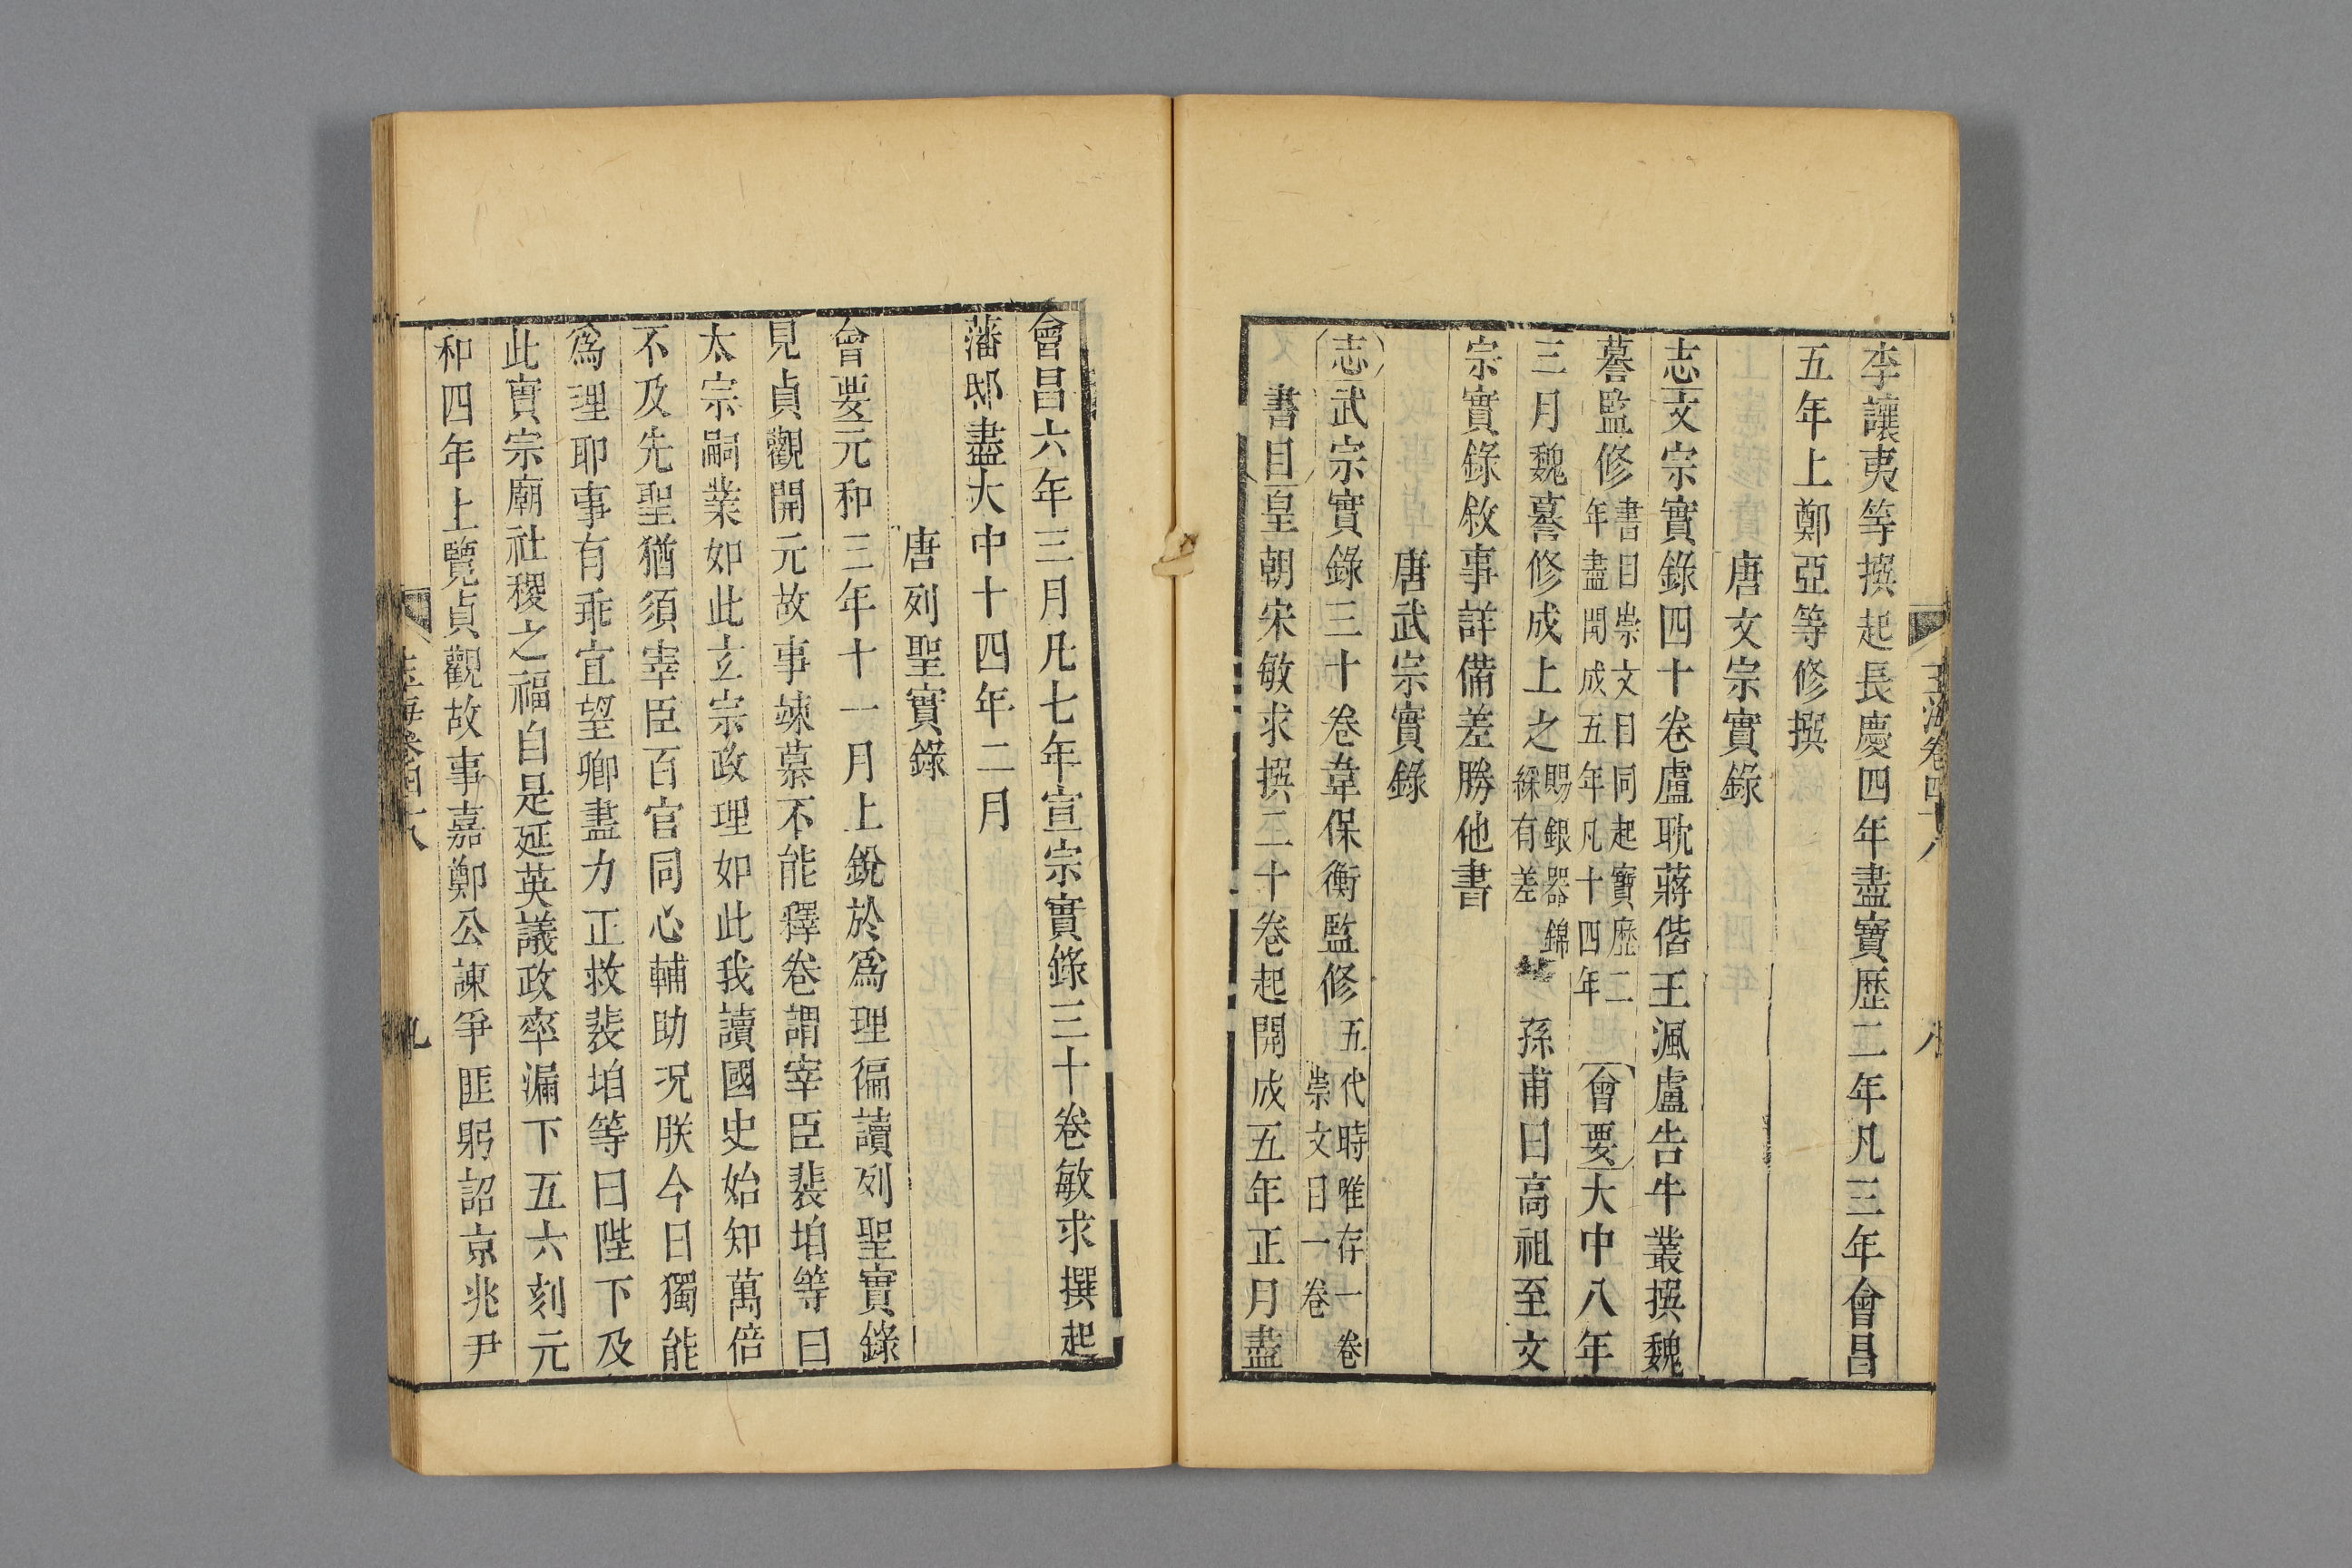 李讓夷等撰起長慶四年盡寶歷二年凡三年會昌
五年上鄭亞等修撰
唐文宗實錄
志文宗實錄四十卷盧耽蔣偕王渢盧告牛叢撰魏
謩監修書目崇文目同起寶歷二年盡開成五年凡十四年會要大中八年
三月魏謩修成上之賜銀器錦綵有差孫甫曰高祖至文
宗實錄敘事詳備差勝他書
唐武宗實錄
志武宗實錄三十卷韋保衡監修五代時唯存一卷崇文目一卷
書目皇朝宋敏求撰二十卷起開成五年正月盡
會昌六年三月凡七年宣宗實錄三十卷敏求撰起
藩邸盡大中十四年二月
唐列聖實錄
會要元和三年十一月上銳於爲理徧讀列聖實錄
見貞觀開元故事竦慕不能釋卷謂宰臣裴垍等曰
太宗嗣業如此玄宗政理如此我讀國史始知萬倍
不及先聖猶須宰臣百官同心輔助況朕今日獨能
爲理耶事有乖宜望卿盡力正救裴垍等曰陛下及
此實宗廟社稷之福自是延英議政率漏下五六刻元
和四年上覽貞觀故事嘉鄭公諫爭匪躬詔京兆尹
玉海卷四十八
八
玉海卷四十八
九